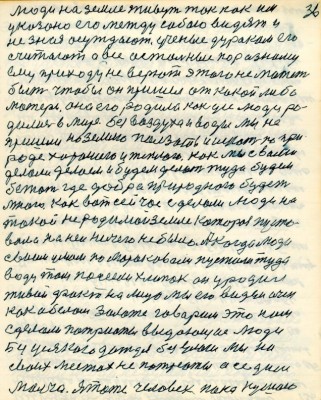 36
люди на земле живут так как им
указано его между собою видят и
не зная осуждают, ученые дураком его
считают а все остальные по разному
ему приходу не верют этого не может
быть чтобы он пришел от какой либо
матери, она его родила как все люди ро
дились в мире без воздуха и воды мы не
пришли на землю ползать и искать по при
роде хорошего и теплого, как мы с вами
делали делаем и будем делать туда будем
бежать где добра природного будет
много, как вот сейчас сделали люди на
такой неродимой земле которая пусто
вала на ней ничего не было. А когда люди
своим умом помараковали пустили туда
воду там посеяли хлопок он уродил
живой факт на лицо мы его видим очи
как о белом золоте говорим это нам
сделали патриоты выдающие люди
без всякого дождя без влаги мы на
своих местах не потратили а сединели
молча. Я тоже человек пока кушаю